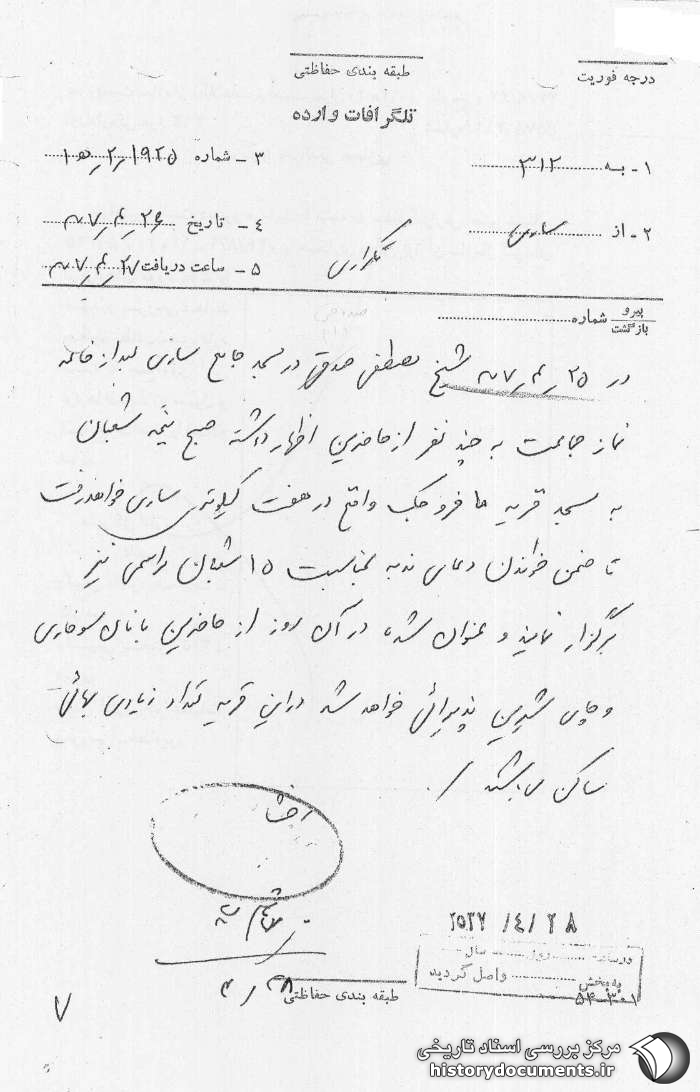 درجه فوریت
طبقه بندی حفاظتی
تلگرافات وارده
۱ - به ۳۱۲
۳ - شماره ۱۹۲۵
۲ - از ساری
۴ - تاریخ
۵ - ساعت دریافت
تکراری
پیرو
بازگشت
شماره
در ۲۵ شیخ مصطفی صدوقی در مسجد جامع ساری بعد از خاتمه
نماز جماعت به چند نفر از حاضرین اظهار داشته صبح نیمه شعبان
به مسجد قریه ما فروجک واقع در هفت کیلومتری ساری خواهد رفت
تا ضمن خواندن دعای ندبه بمناسبت ۱۵ شعبان مراسمی نیز
برگزار نمایند و عنوان شده در آن روز از حاضرین با نان سوخاری
و چای شیرین پذیرائی خواهد شد در این قریه تعداد زیادی بهائی
ساکن می باشند /.
افشا
۲۵۳۷ /٤/ ۲۸
ورسانه روز سال
به بخش واصل گردید
۵۴-۳۰۱
طبقه بندی حفاظتی
۷
مرکز بررسی اسناد تاریخی
historydocuments.ir